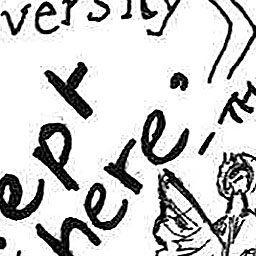 versity
ept
here.